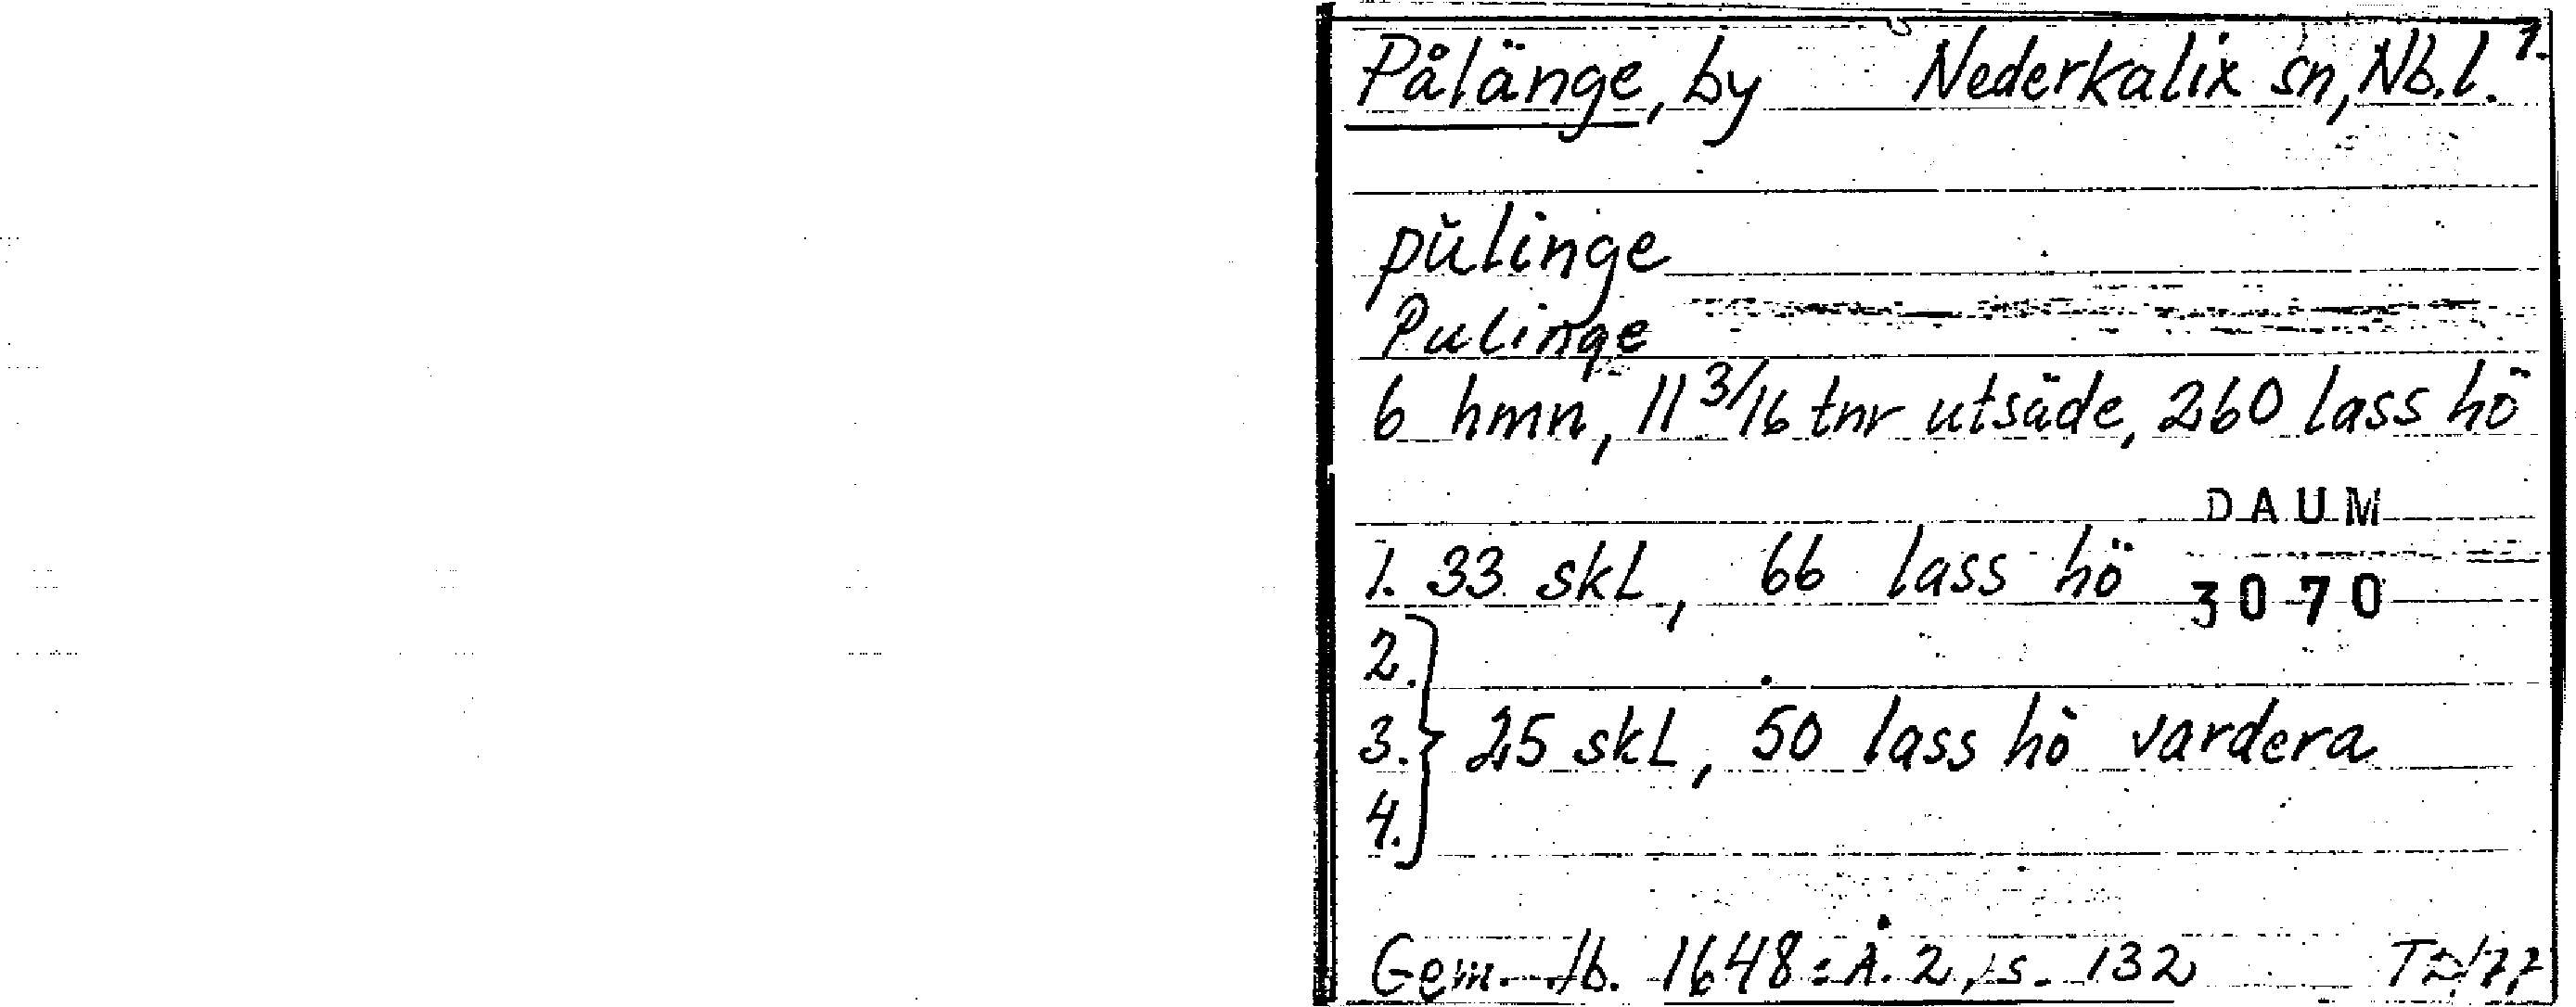 Pålänge, by Nederkalix sn, Nb.l. 1.
pŭlinge
Pulinge
6 hmn, 11 3/16 tnr utsäde, 260 lass hö
DAUM
1. 33 skl, 66 lass hö 3070
2.
3. 25 skl, 50 lass hö vardera
4.
Gem. Jb. 1648: Å. 2, s. 132